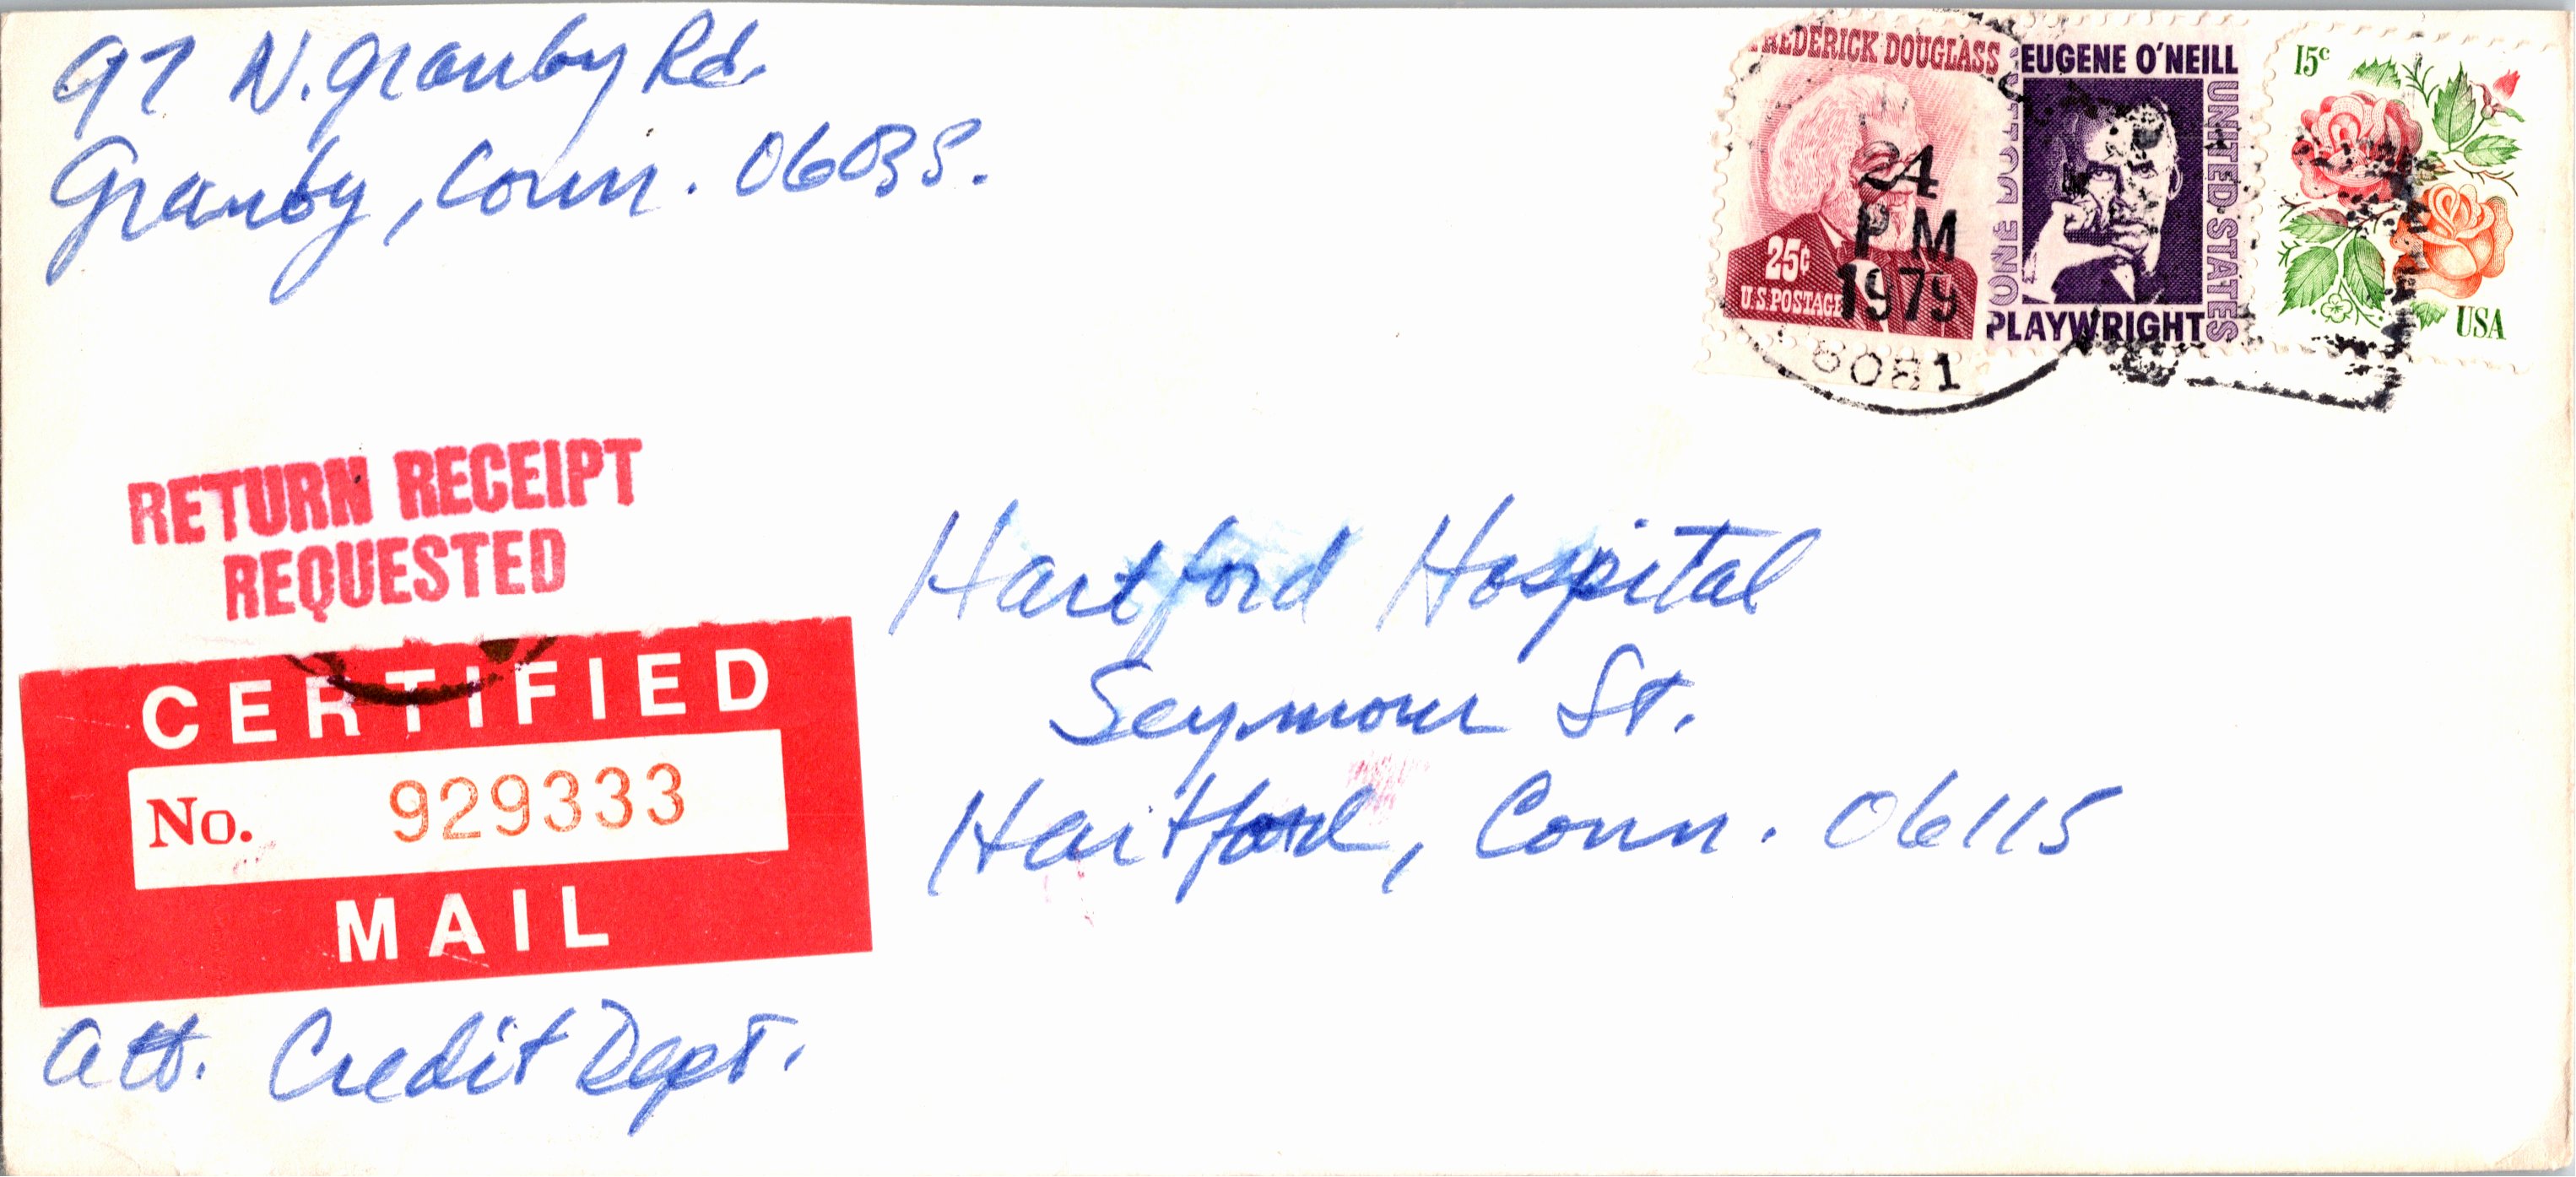 97 N. Granby Rd.
Granby, Conn. 06035.
FREDERICK DOUGLASS
25¢
U.S. POSTAGE
EUGENE O'NEILL
ONE DOLLAR
UNITED STATES
PLAYWRIGHT
15c
USA
24
PM
1979
RETURN RECEIPT
REQUESTED
CERTIFIED
No. 929333
MAIL
Hartford Hospital
Seymour St.
Hartford, Conn. 06115
Att. Credit Dept.